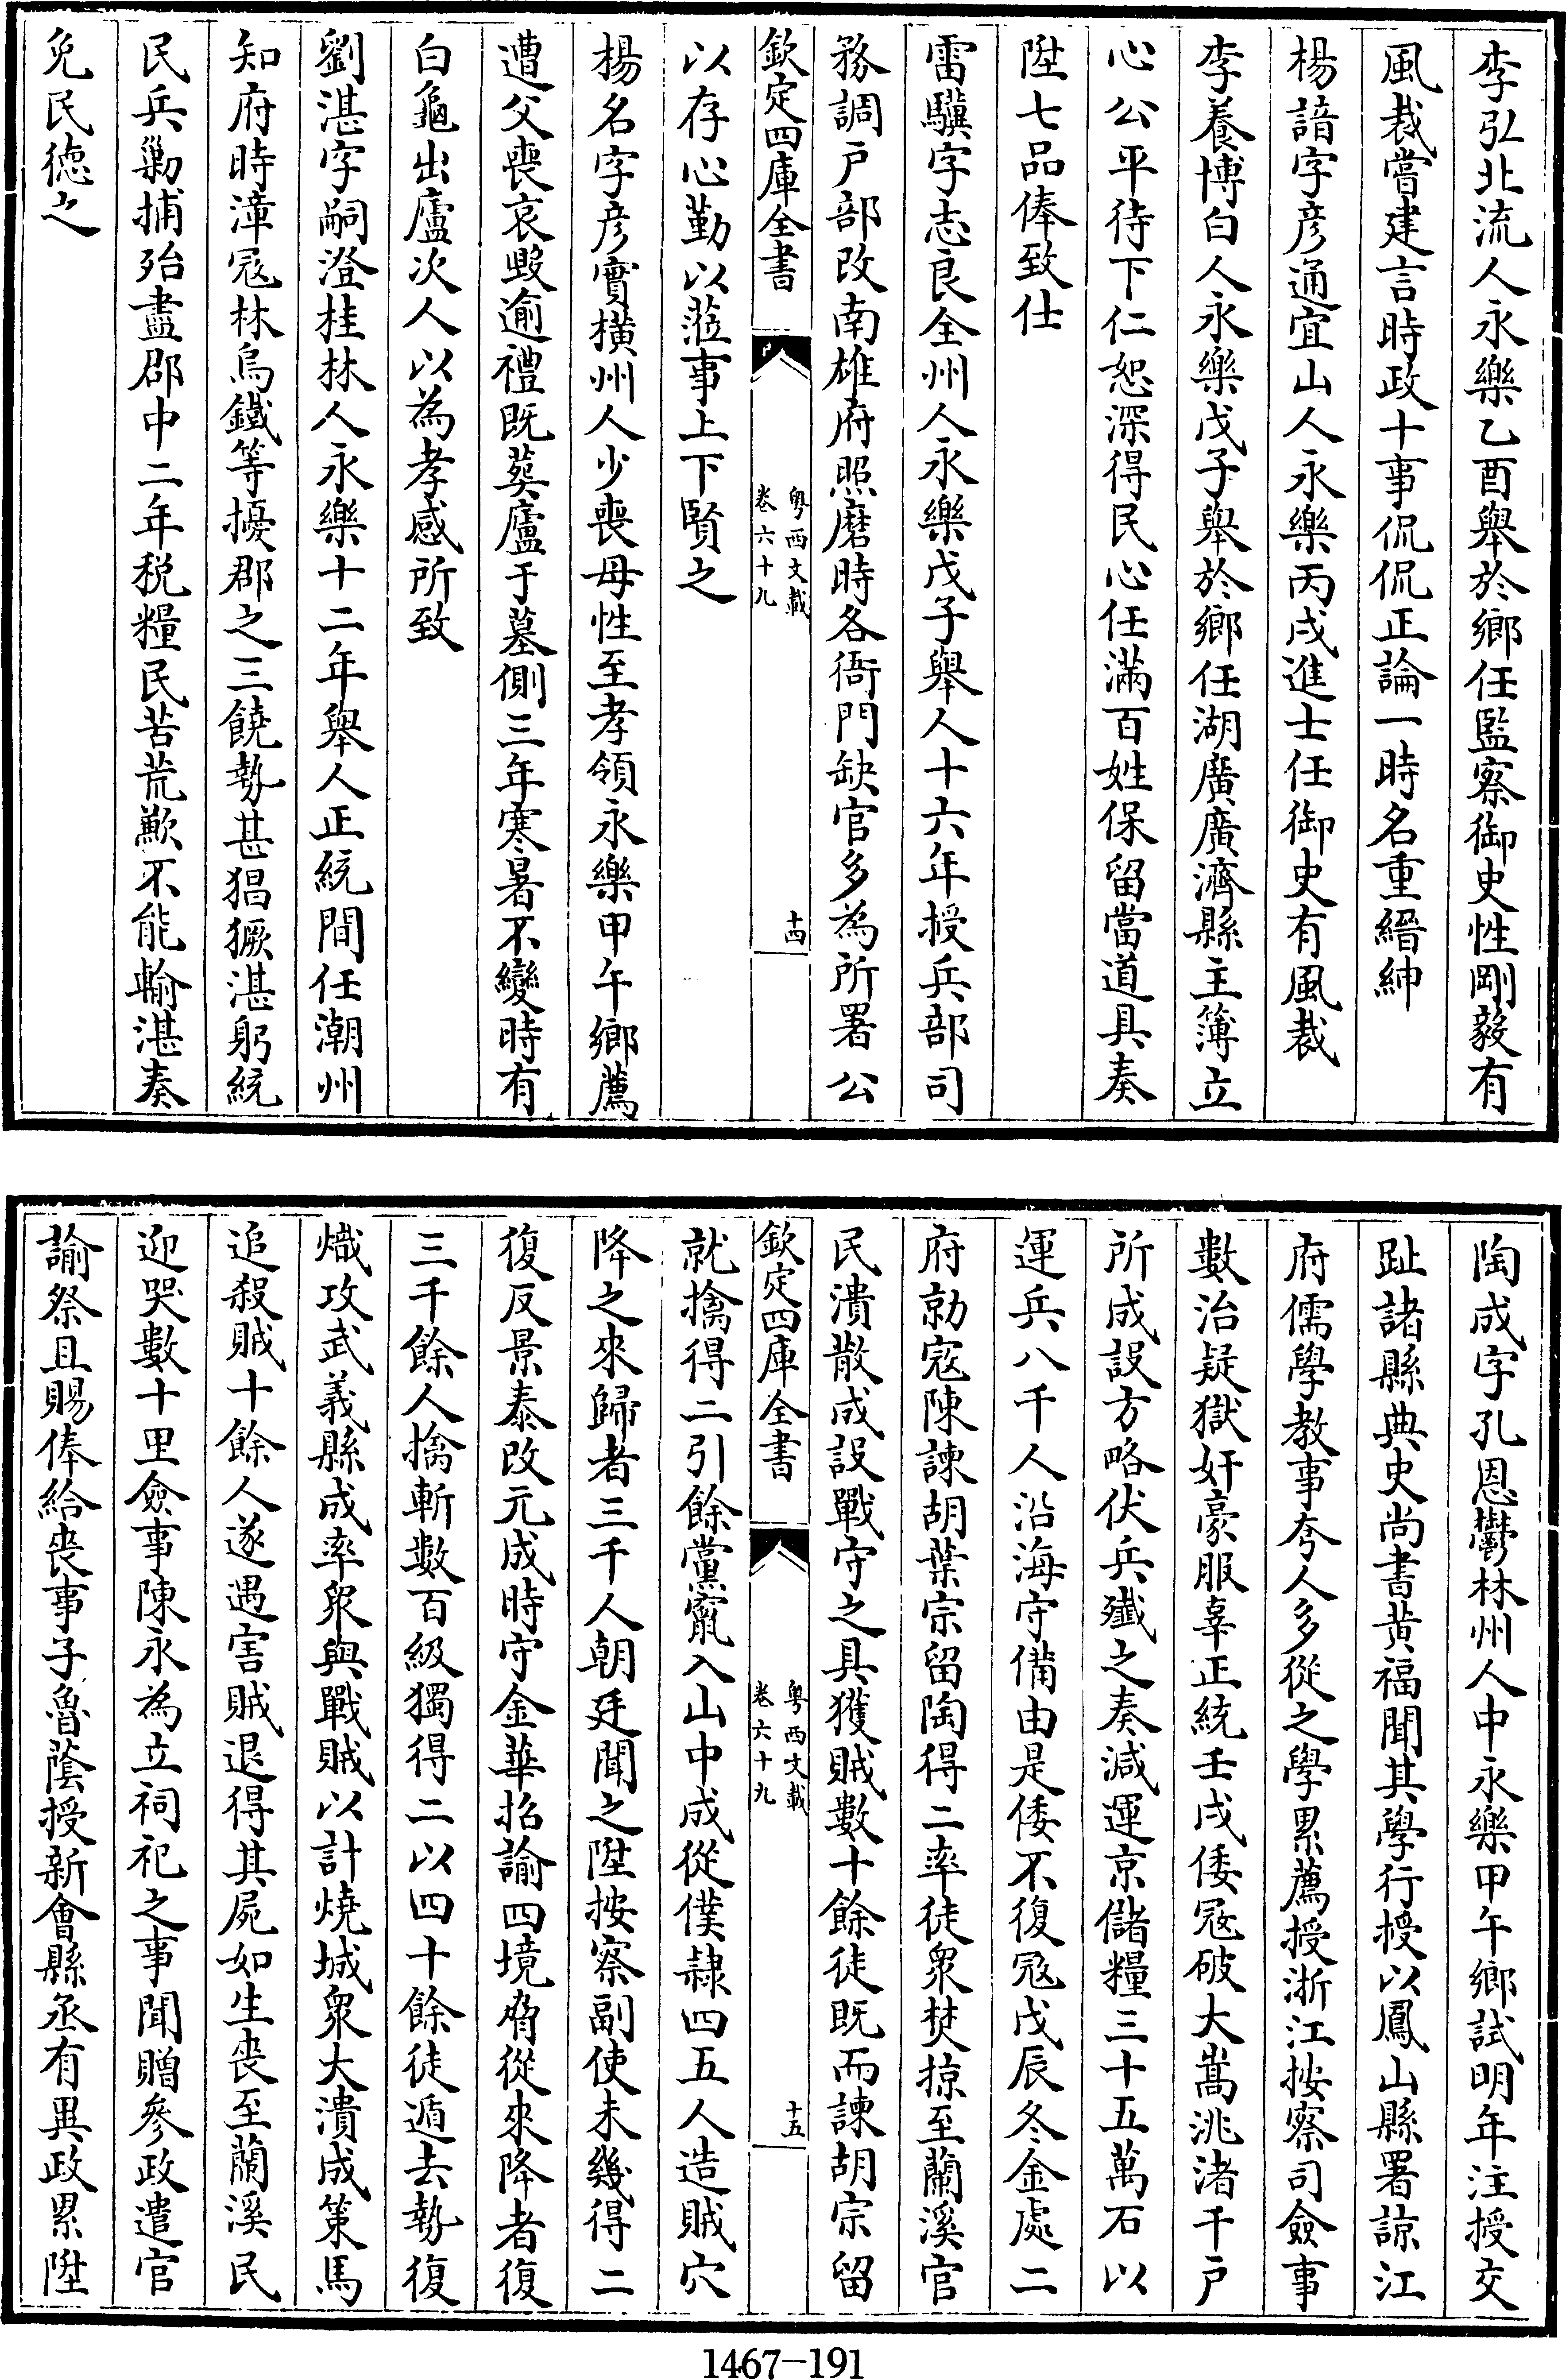 李弘北流人永樂乙酉舉於鄉任監察御史性剛毅有
風裁嘗建言時政十事侃侃正論一時名重縉紳
楊諳字彥通宜山人永樂丙戌進士任御史有風裁
李養博白人永樂戊子舉於鄉任湖廣廣濟縣主簿立
心公平待下仁恕深得民心任滿百姓保留當道具奏
陞七品俸致仕
雷驥字志良全州人永樂戊子舉人十六年授兵部司
務調戶部改南雄府照磨時各衙門缺官多為所署公
欽定四庫全書
粵西文載
卷六十九
十四
以存心勤以蒞事上下賢之
楊名字彥實橫州人少喪母性至孝領永樂甲午鄉薦
遭父喪哀毀逾禮既葬廬于墓側三年寒暑不變時有
白龜出廬次人以為孝感所致
劉湛字嗣澄桂林人永樂十二年舉人正統間任潮州
知府時漳寇林烏鐵等擾郡之三饒勢甚猖獗湛躬統
民兵勦捕殆盡郡中二年稅糧民苦荒歉不能輸湛奏
免民德之
陶成字孔恩鬱林州人中永樂甲午鄉試明年注授交
趾諸縣典史尚書黃福聞其學行授以鳳山縣署諒江
府儒學教事夸人多從之學累薦授浙江按察司僉事
數治疑獄奸豪服辜正統壬戌倭寇破大嵩洮渚千戶
所成設方略伏兵殲之奏減運京儲糧三十五萬石以
運兵八千人沿海守備由是倭不復寇戊辰冬金處二
府勍寇陳諫胡葉宗留陶得二率徒衆焚掠至蘭溪官
民潰散成設戰守之具獲賊數十餘徒既而諫胡宗留
欽定四庫全書
粵西文載
卷六十九
十五
就擒得二引餘黨竄入山中成從僕隸四五人造賊穴
降之來歸者三千人朝廷聞之陞按察副使未幾得二
復反景泰改元成時守金華招諭四境脅從來降者復
三千餘人擒斬數百級獨得二以四十餘徒遁去勢復
熾攻武義縣成率衆與戰賊以計燒城衆大潰成策馬
追殺賊十餘人遂遇害賊退得其屍如生喪至蘭溪民
迎哭數十里僉事陳永為立祠祀之事聞贈參政遣官
諭祭且賜俸給喪事子魯蔭授新會縣丞有異政累陞
1467-191